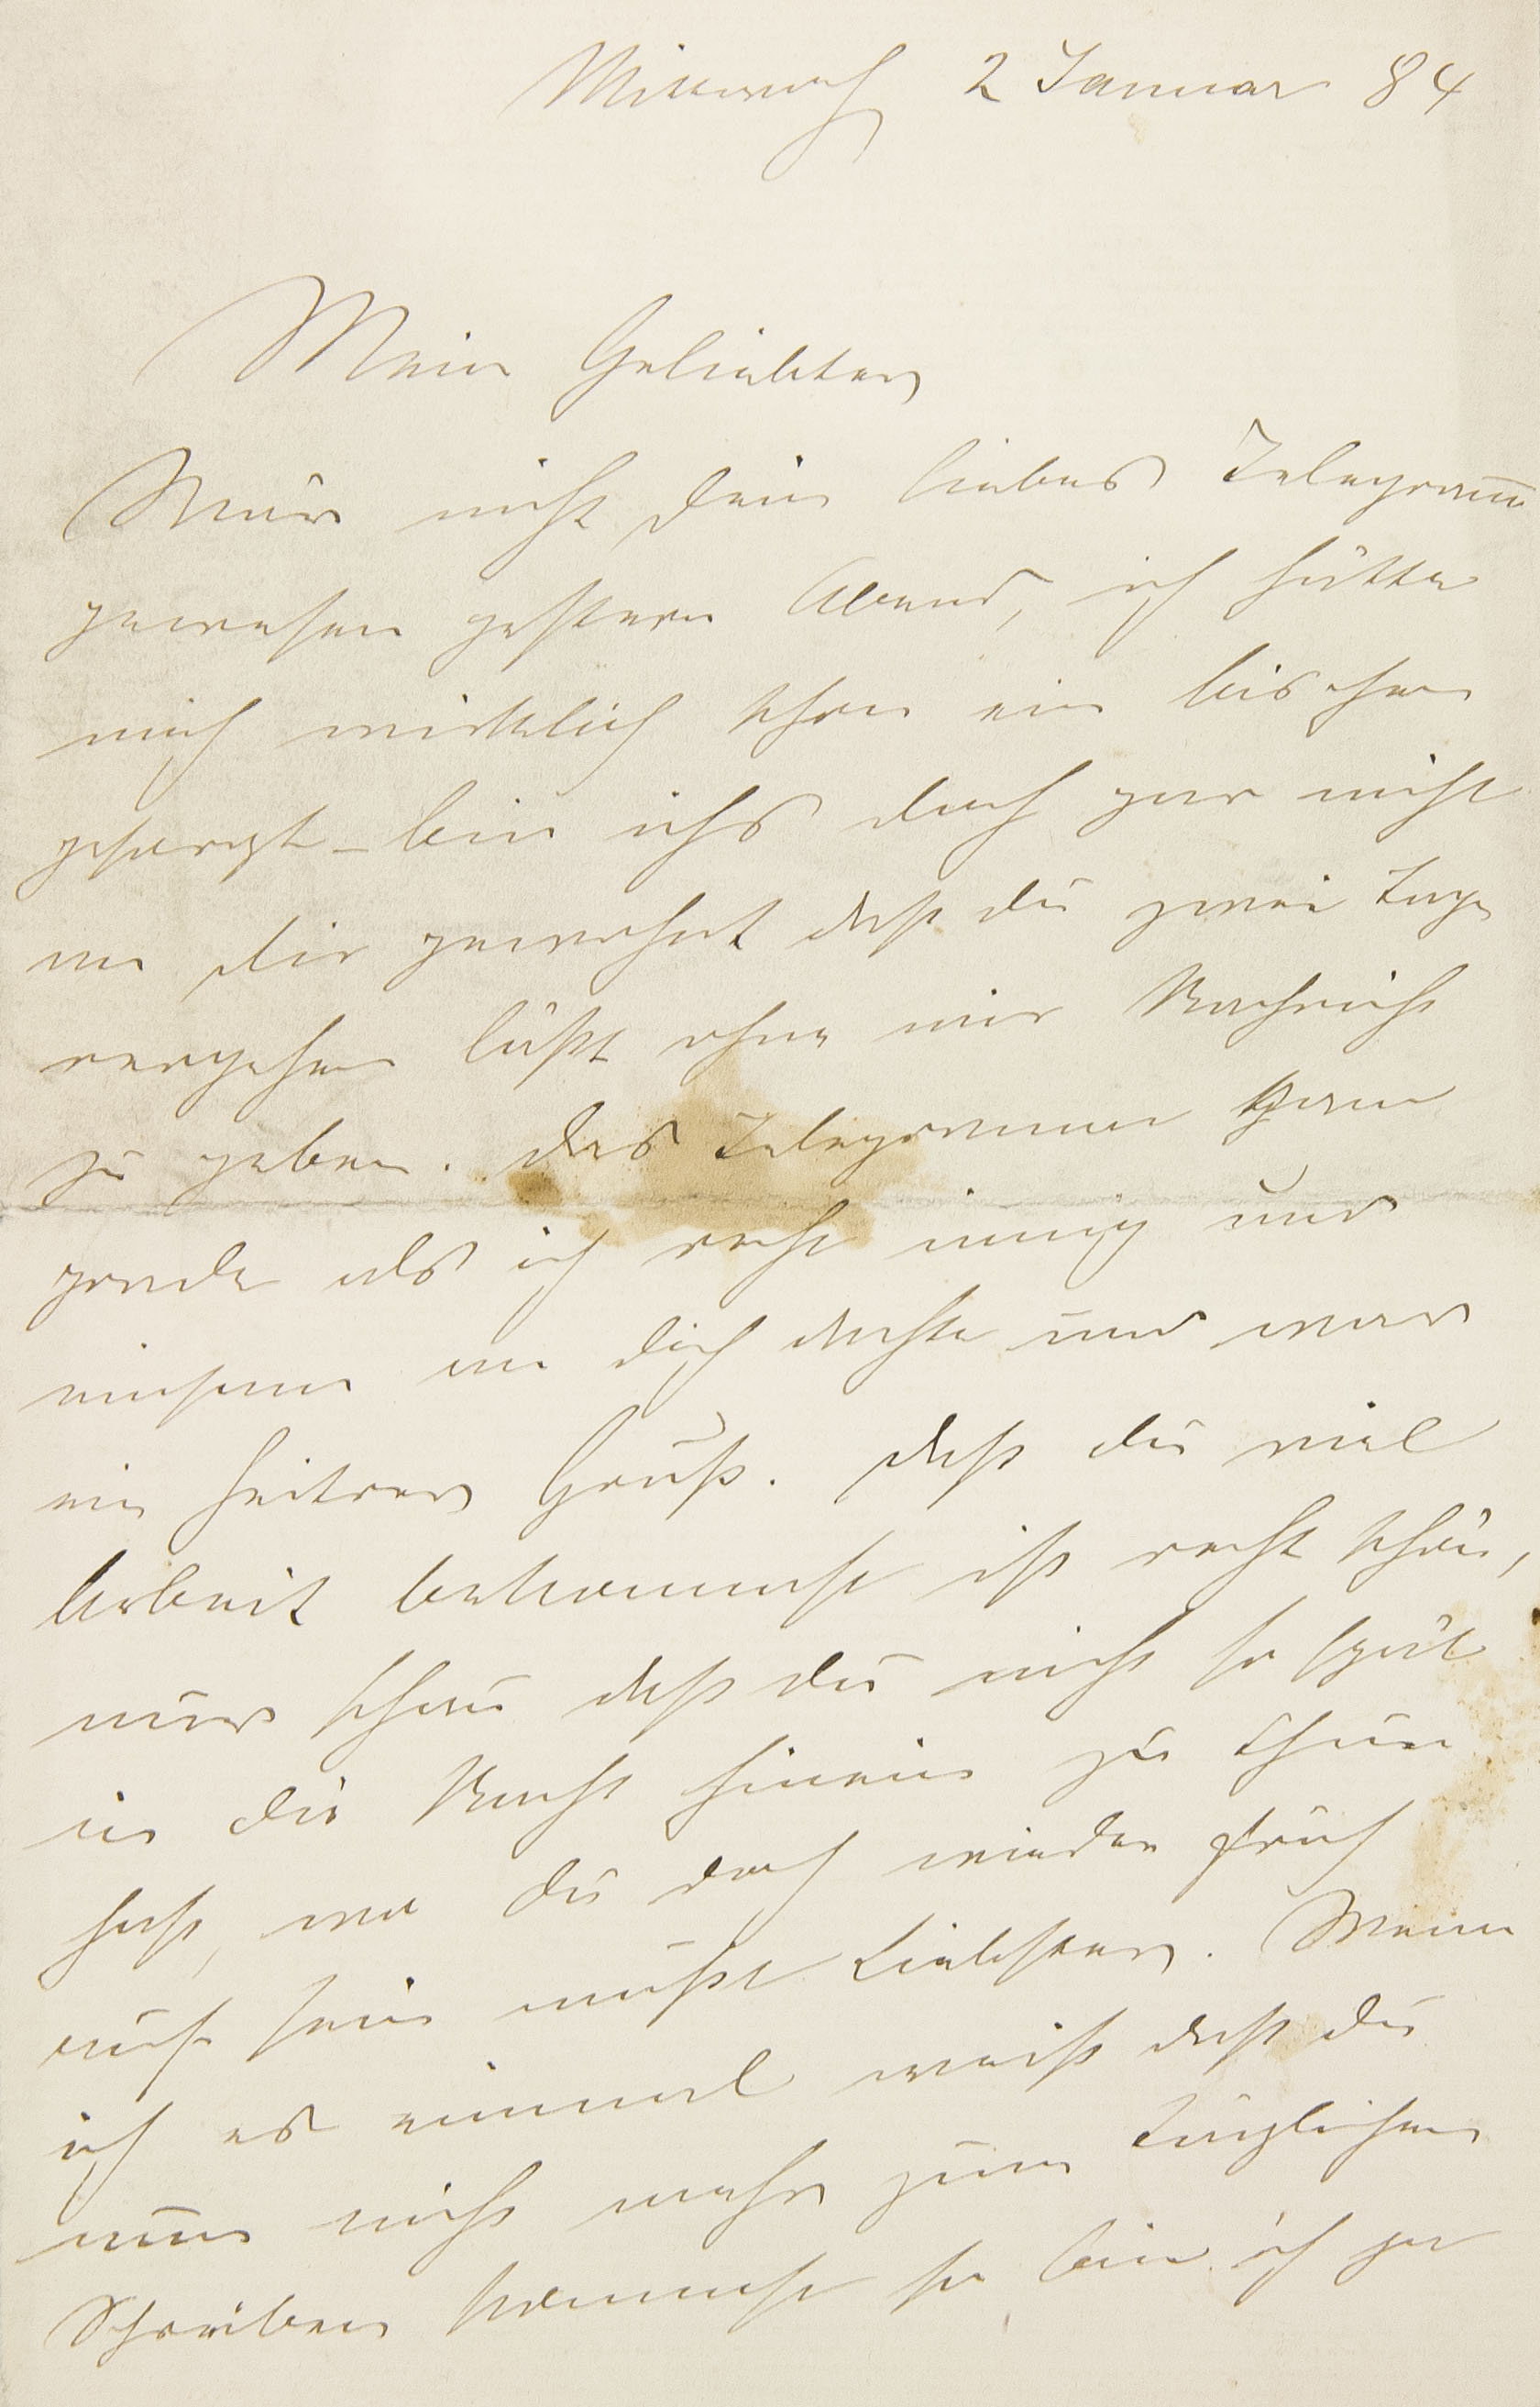 Mittwoch 2 Januar 84
Mein Geliebter
Wär nicht dein liebes Telegram̅
gewesen gestern Abend, ich hätte
mich wirklich schon ein bischen
gesorgt – bin ichs doch gar nicht
an dir gewohnt daß du zwei Tage
vergehen läßt ohne mir Nachricht
zu geben. Das Telegramm kam
grade als ich recht innig und
einsam an dich dachte und war
ein heitrer Gruß. Daß du viel
Arbeit bekommst ist recht schön,
nur schau daß du nicht so spät
in die Nacht hinein zu thun
hast, wo du doch wieder früh
auf sein mußt Liebster. Wenn
ich es einmal weiß daß du
nun nicht mehr zum täglichen
Schreiben kommst so bin ich ja